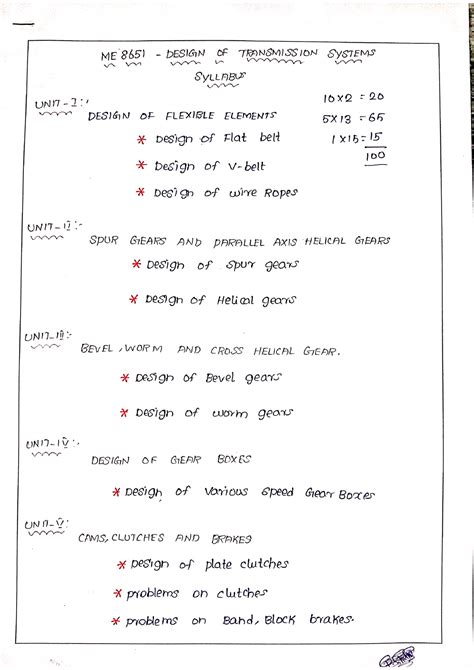 ME 8651 - DESIGN OF TRANSMISSION SYSTEMS
SYLLABUS
UNIT-I:-
10x2 = 20
DESIGN OF FLEXIBLE ELEMENTS
5x13 = 65
* Design of Flat belt
1x15=15
100
* Design of V-belt
* Design of wire Ropes
UNIT-II:-
SPUR GEARS AND PARALLEL AXIS HELICAL GEARS
* Design of Spur gears
* Design of Helical gears
UNIT-III:-
BEVEL, WORM AND CROSS HELICAL GEAR.
* Design of Bevel gears
* Design of worm gears
UNIT-IV:-
DESIGN OF GEAR BOXES
* Design of Various Speed Gear Boxes
UNIT-V:
CAMS, CLUTCHES AND BRAKES
* Design of plate clutches
* problems on clutches
* problems on Band, Block brakes.